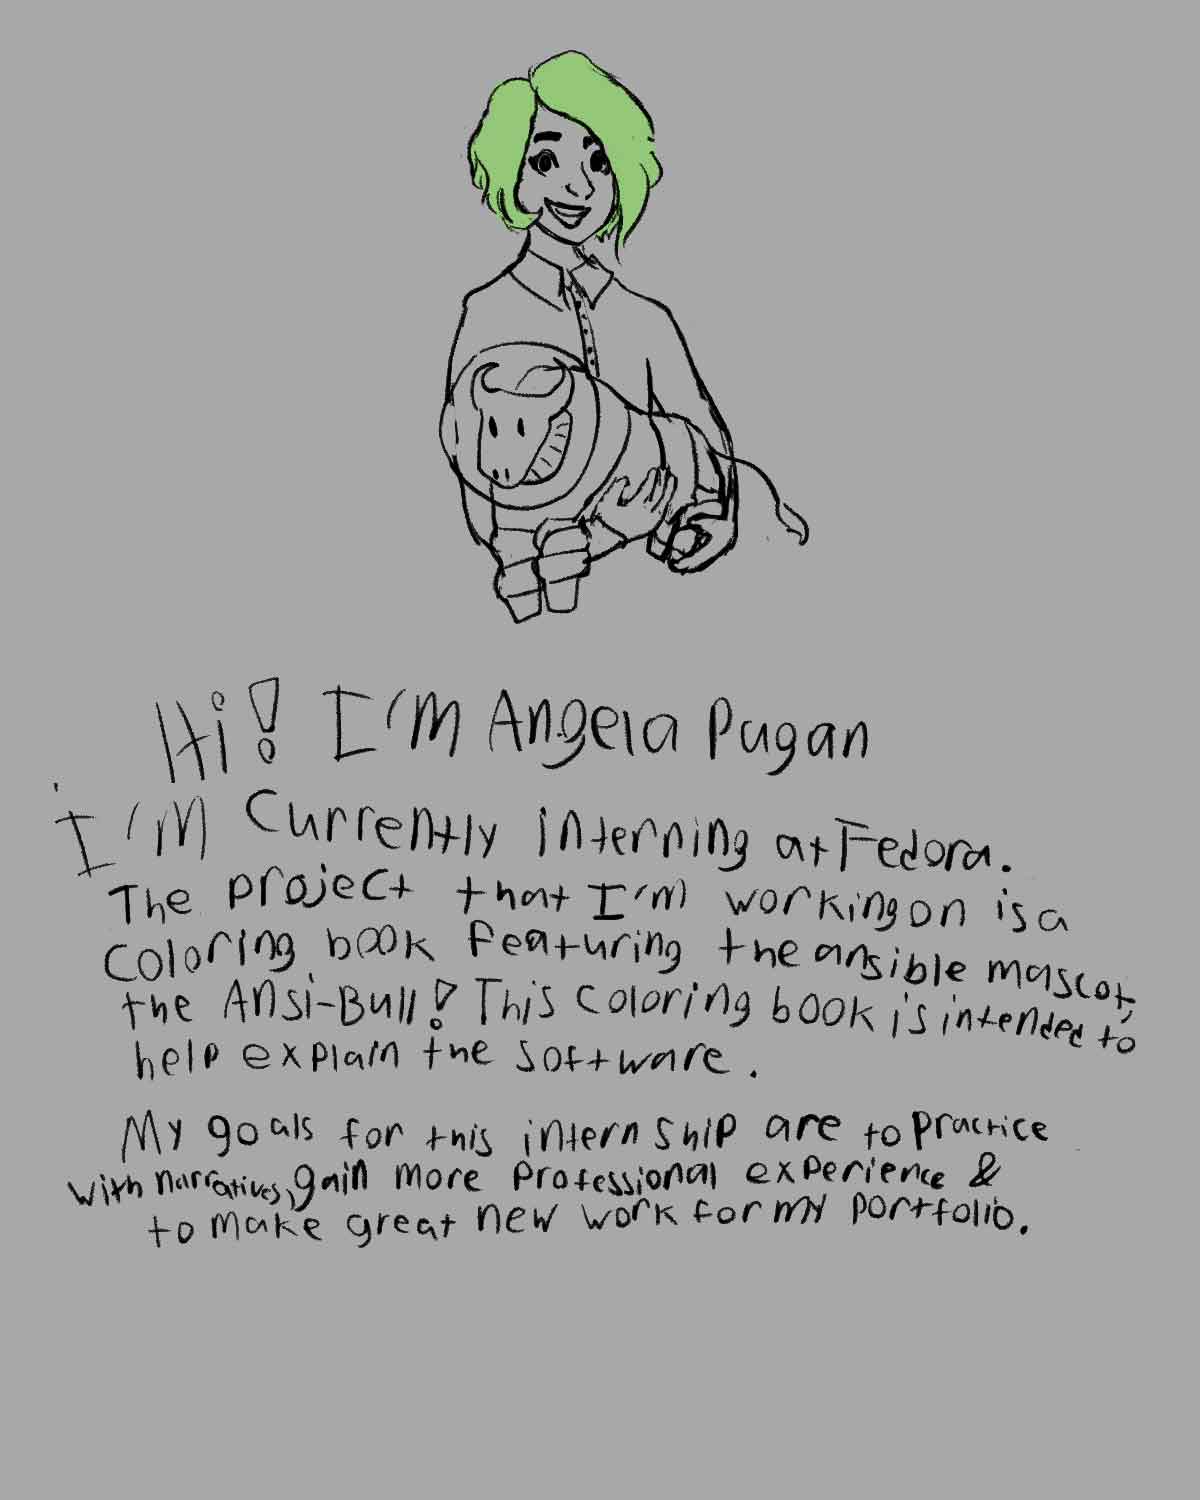 Hi! I'm Angela Pagan
I'm Currently interning at Fedora.
The project that I'm working on is a
coloring book featuring the ansible mascot,
the Ansi-Bull! This coloring book is intended to
help explain the software.
My goals for this internship are to practice
with narratives, gain more professional experience &
to make great new work for my portfolio.